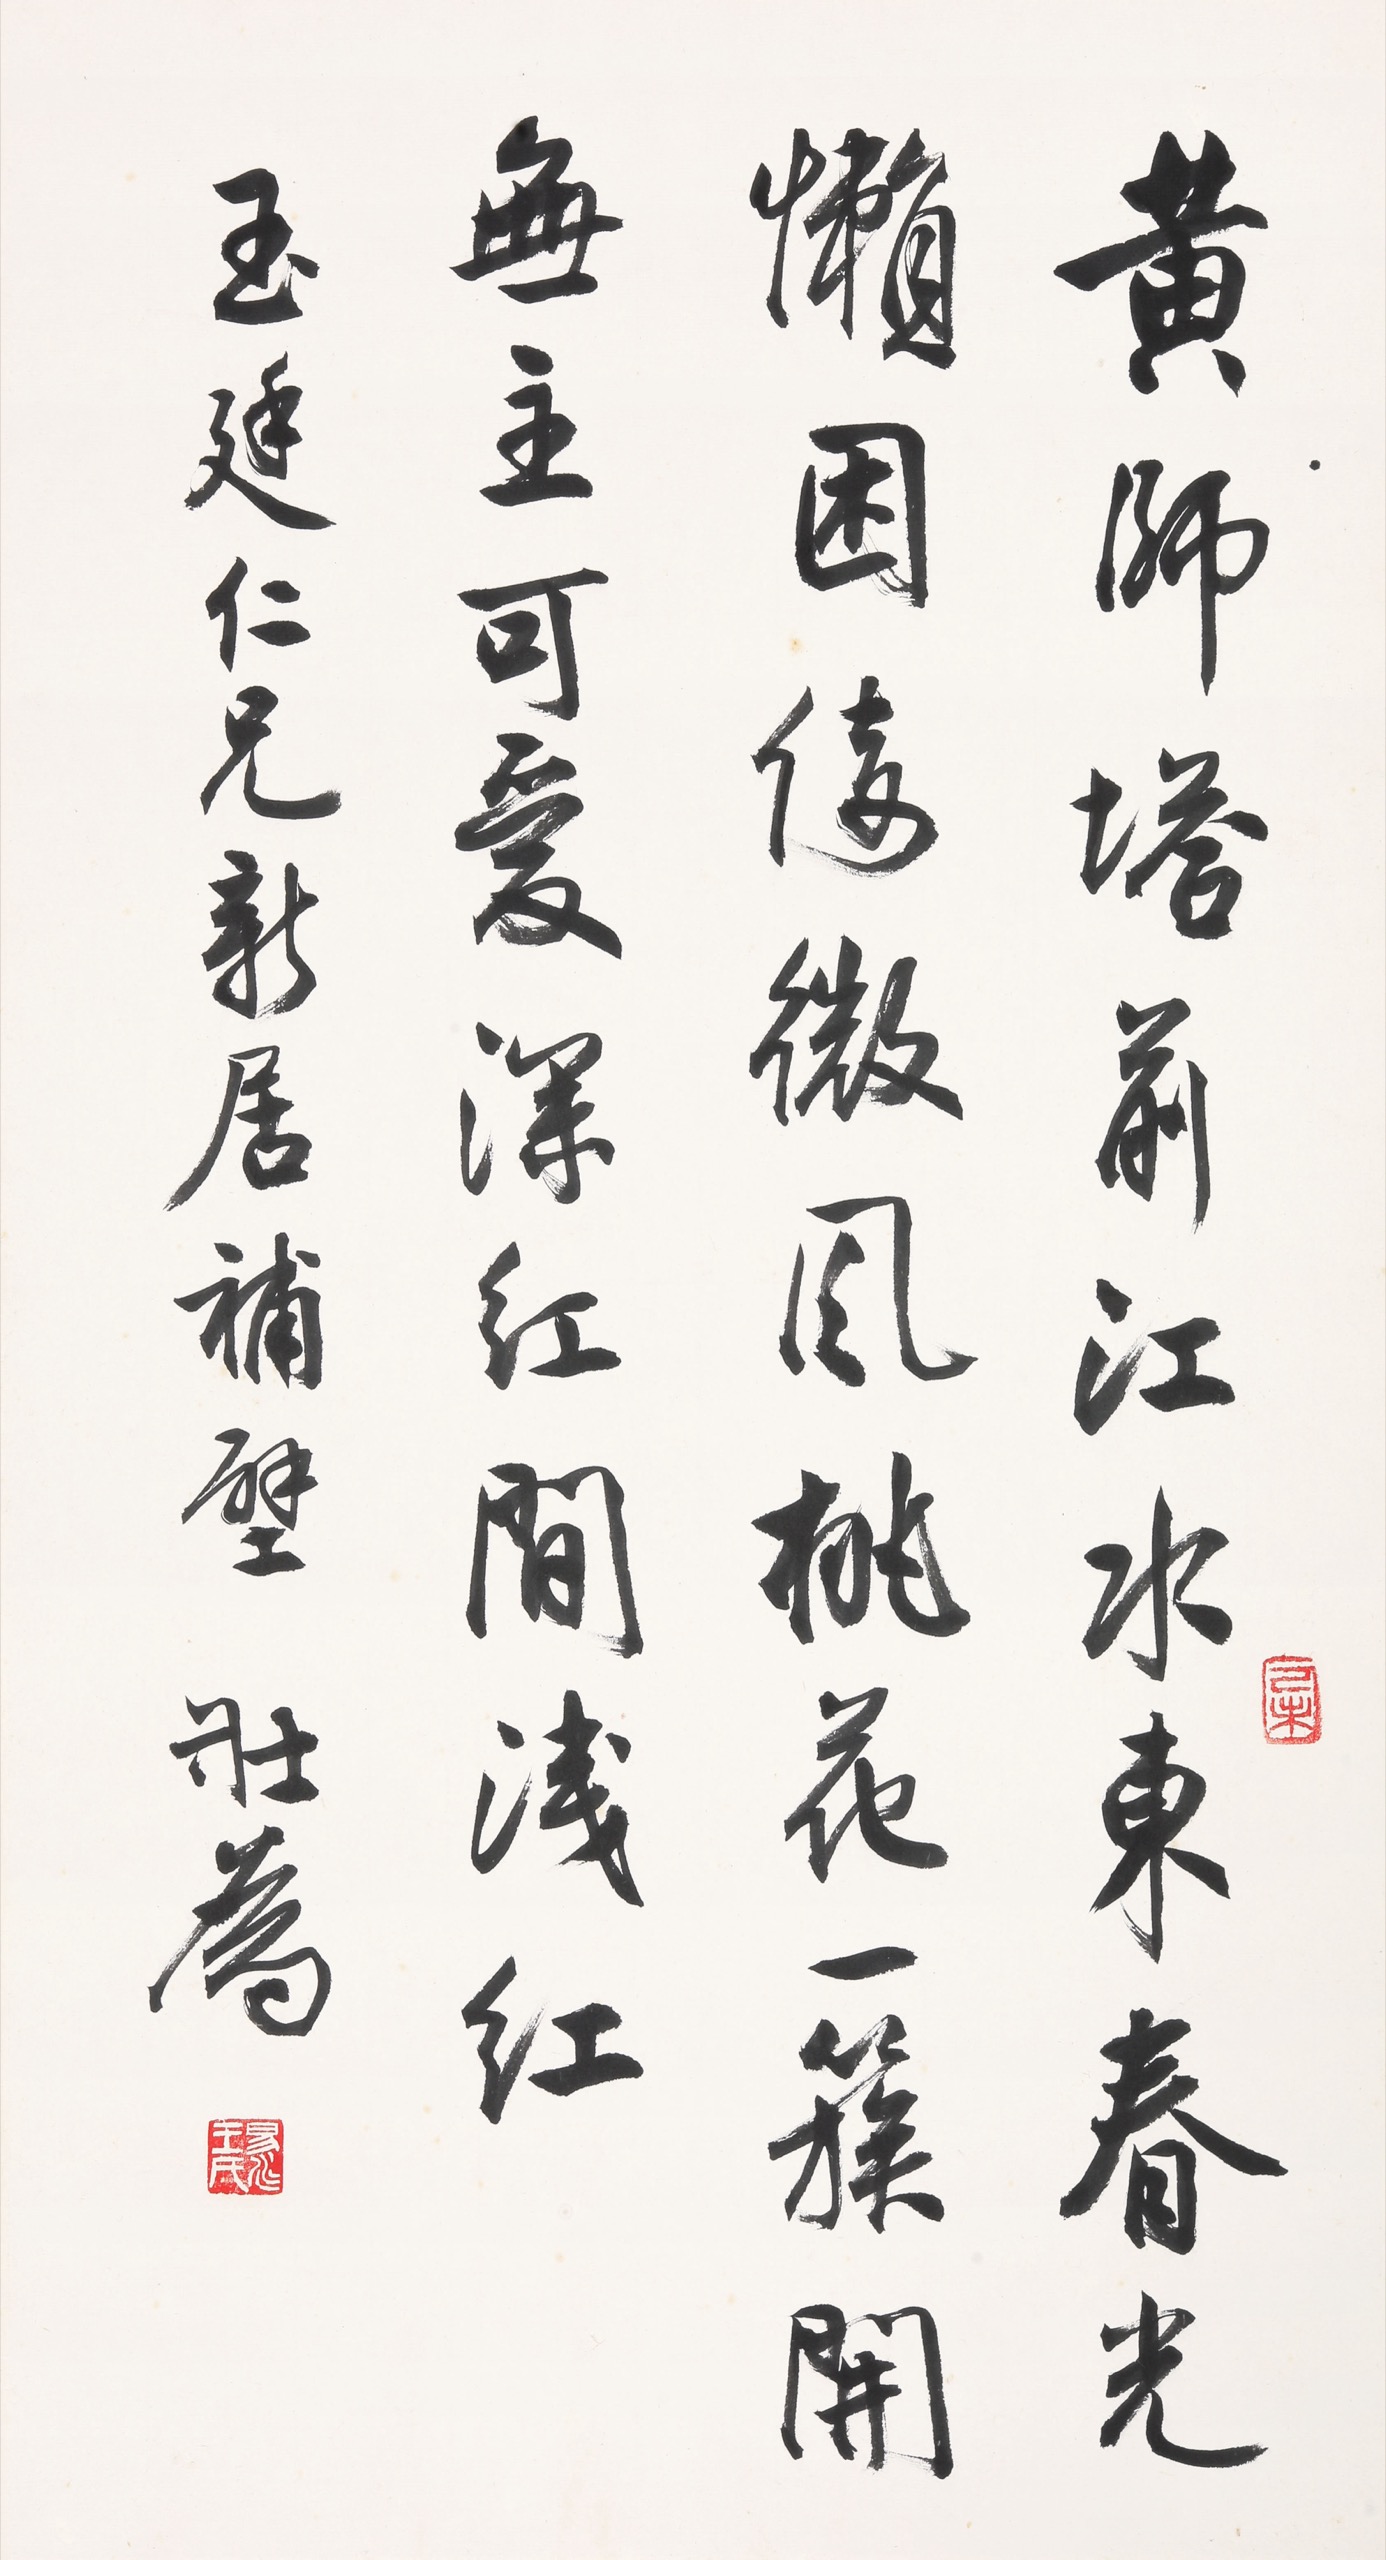 黃師塔前江水東春光
懶困倚微風桃花一簇開
無主可愛深紅間淺紅
玉廷仁兄新居補壁 壯為